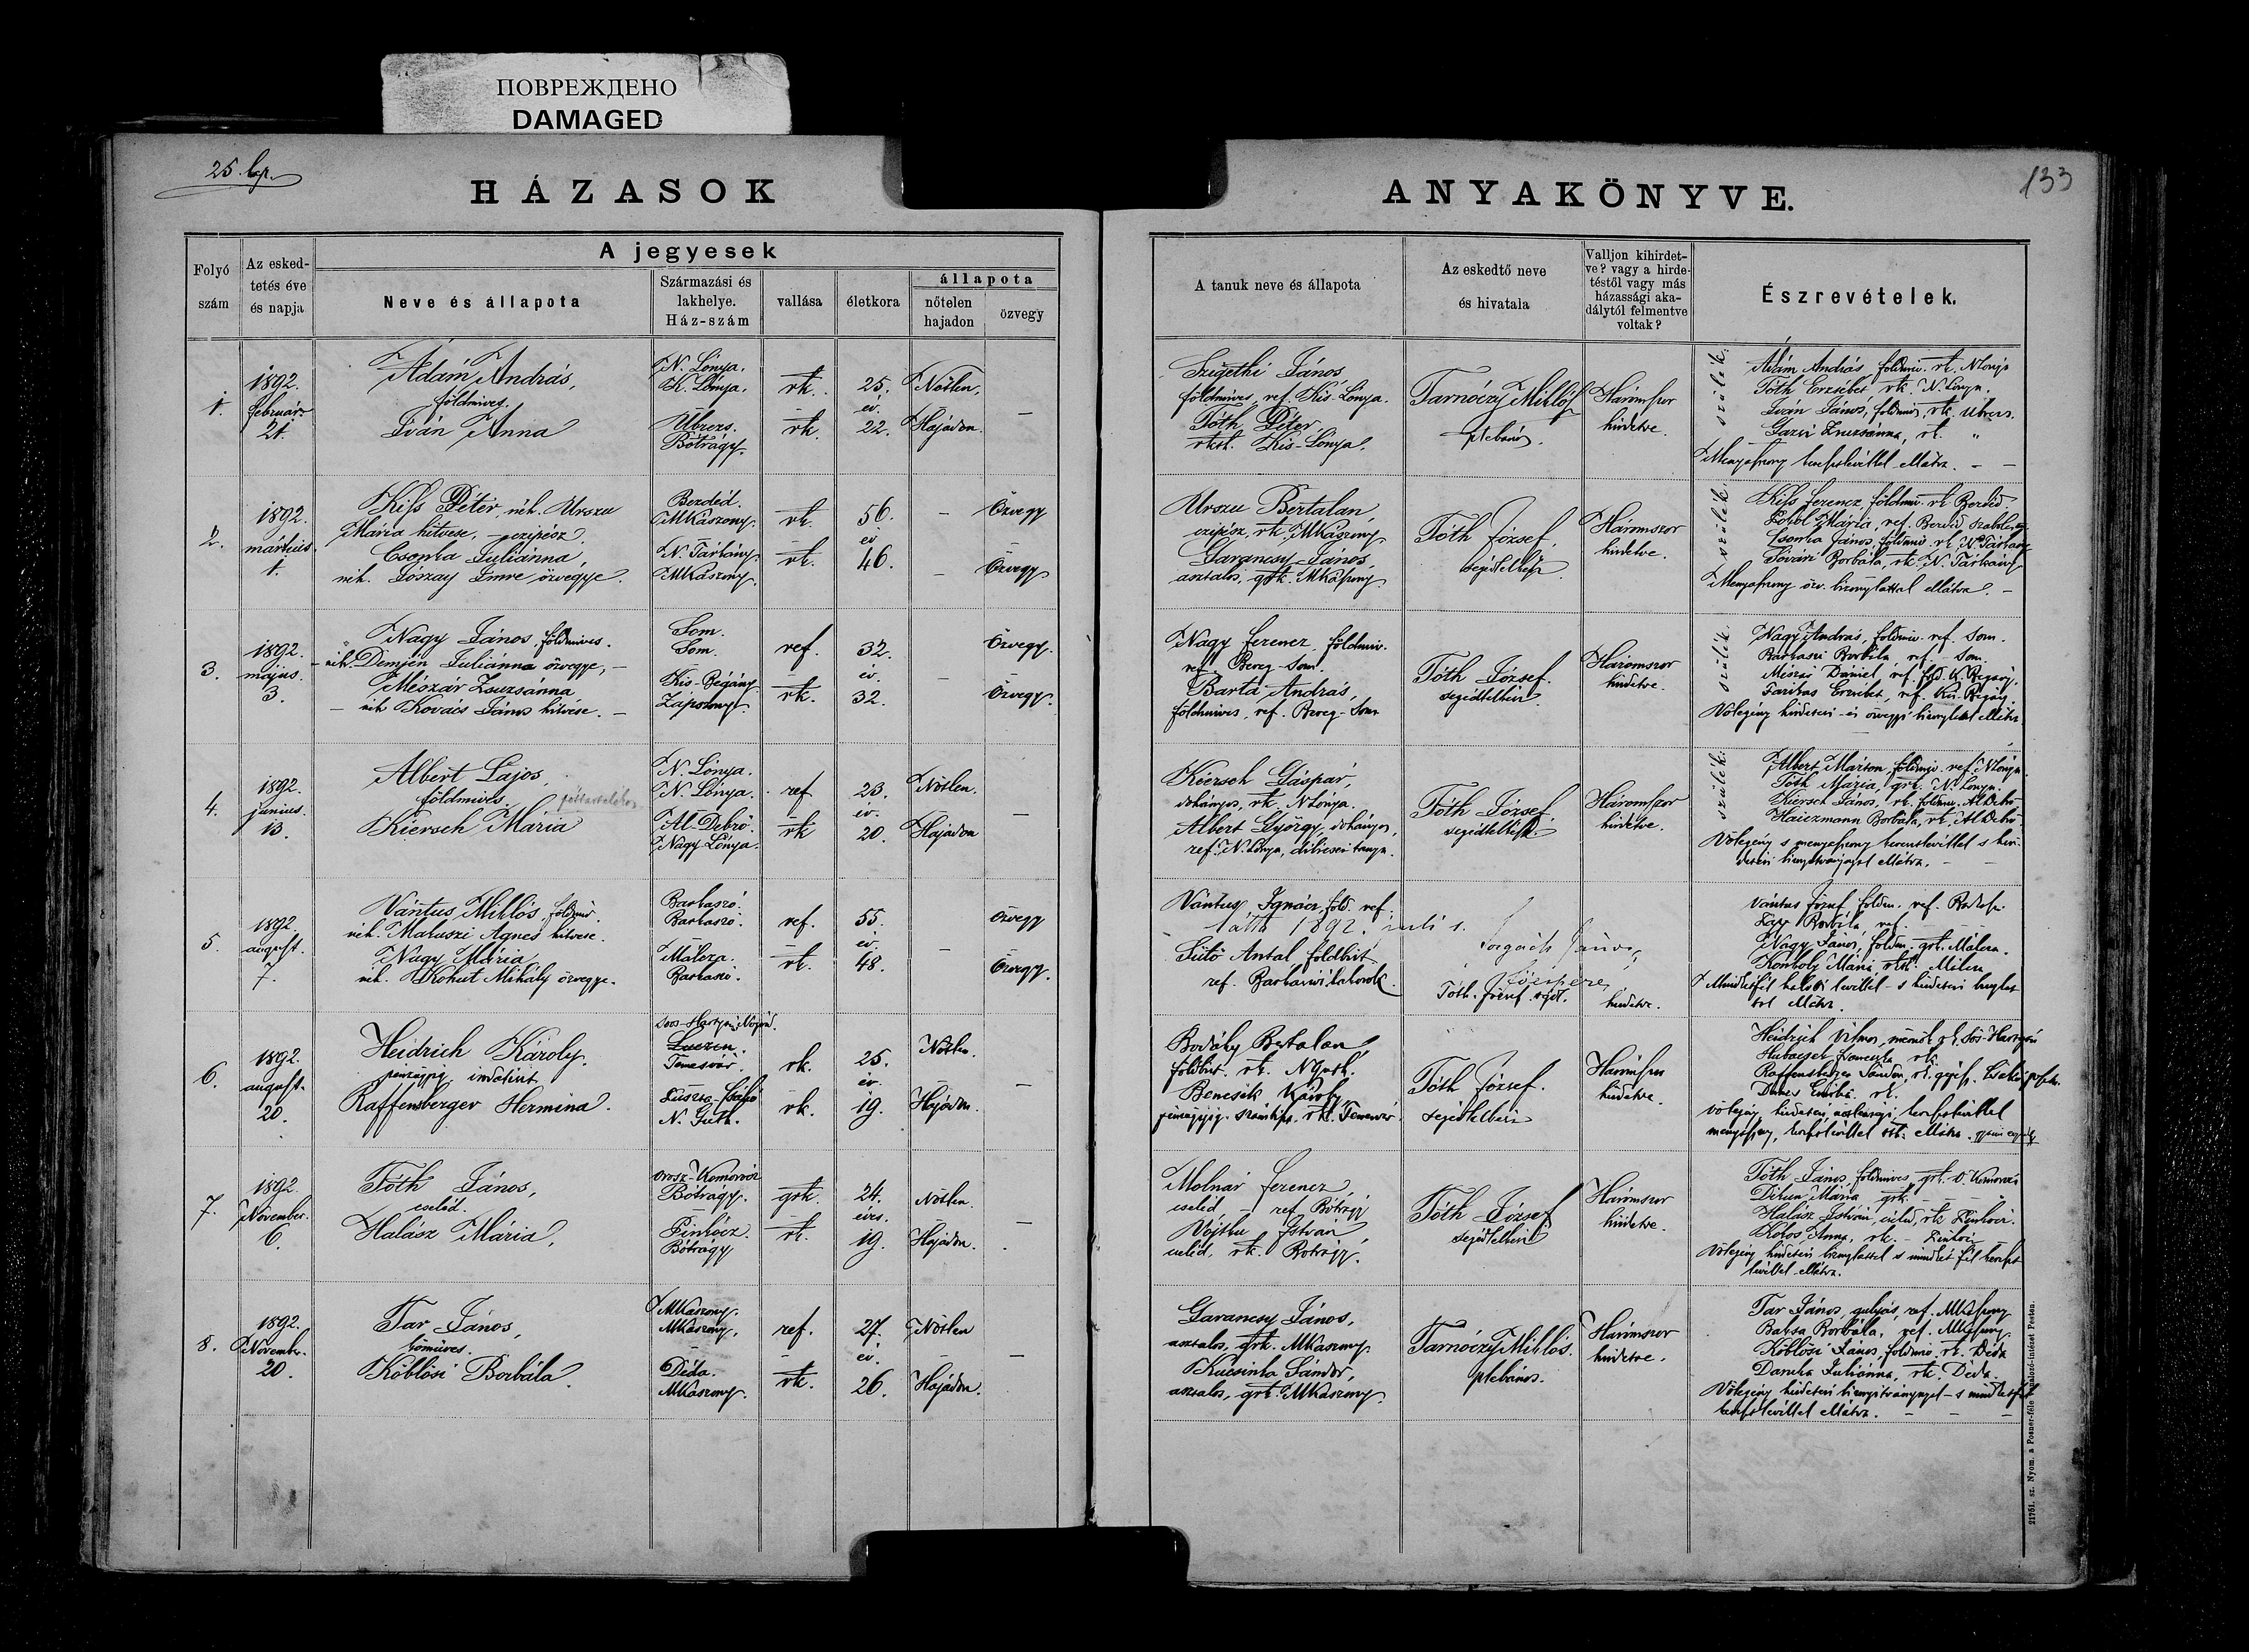 ПОВРЕЖДЕНО
DAMAGED
25. lap.
133
HÁZASOK
ANYAKÖNYVE.
Folyó szám
Az esked-
tetés éve
és napja
A jegyesek
Neve és állapota
Származási és
lakhelye.
Ház-szám
vallása
életkora
állapota
nőtelen
hajadon
özvegy
A tanuk neve és állapota
Az eskedtő neve
és hivatala
Valljon kihirdet-
ve? vagy a hirde-
téstől vagy más
házassági aka-
dálytól felmentve
voltak?
Észrevételek.
1.
1892.
február
21.
Ádám András,
földmives.
Iván Anna
N. Lónya.
K. Lónya.
Ubrezs.
Bótrágy.
rk.
rk.
25.
év.
22.
Nőtlen,
Hajadon.
Szigethi János
földmives, ref. Kis-Lónya.
Tóth Péter,
Kis-Lónya.
Tarnóczy Miklós
plebános.
Háromszor
hirdetve.
szülék:
Ádám András, földmiv. rk. N Lónya
Tóth Erzsébet rk. N. Lónya.
Iván János, földmiv. rk. Ubrezs.
Zsuzsánna, rk. "
Menyasszony keresztlevéllel ellátva.
2.
1892.
mártius.
1.
Kiss Péter, néh. Urszu
Mária hitvese, – czipész.
Csonka Juliánna,
néh. Lószay Imre özvegye.
Bezdéd.
MKászony.
N. Tárkány.
MKászony.
rk.
rk.
56.
év
46.
Özvegy
Özvegy
Urszu Bertalan,
czipész, rk. MKászony
Garancsy János,
asztalos, grk. MKászony.
Tóth József,
segédlelkész
Háromszor
hirdetve.
szülék:
Kiss Ferencz, földmiv. rk. Bezdéd
Mária, ref. Bezdéd
Csonka János, földmiv. rk. N. Tárkány
Borbála, rk. N. Tárkány
Menyasszony özv. bizonylattal ellátva.
3.
1892.
május.
3.
Nagy János földmives.
néh. Demjén Juliánna özvegye,
Mészár Zsuzsánna
néh Kovács János hitvese.
Som.
Som.
Kis-Begány
Zápszony.
ref.
rk.
32.
év.
32.
Özvegy.
Özvegy.
Nagy Ferencz, földmiv.
ref. Bereg-Som.
Barta András,
földmives, ref. Bereg-Som
Tóth József.
segédlelkész.
Háromszor
hirdetve.
szülék:
Nagy András, földmiv. ref. Som.
Barkaszi Borbála, ref. – Som.
Dániel, ref. föld. K. Begány.
Farkas Erzsébet, ref. Kis-Begány
Vőlegény hirdetési és özvegyi bizonylattal ellátva
4.
1892.
junius.
13.
Albert Lajos,
földmives.
Kiersch Mária
N. Lónya.
N. Lónya.
Al-Debrő.
Nagy-Lónya.
ref
rk
23.
év.
20.
Nőtlen.
Hajadon
Kiersch Gáspár,
dohányos, rk. N Lónya.
Albert György, dohányos,
ref. N. Lónya, tanya.
Tóth József.
segédlelkész.
Háromszor
hirdetve.
szülék:
Albert Márton, földmiv. ref. N Lónya.
Tóth Mária, grk. N. Lónya.
Kiersch János, rk. földmiv. Al Debrő
Borbála, rk. Al Debrő.
Vőlegény s menyasszony keresztlevéllel s hir-
detési bizonyitványnyal ellátva.
5.
1892.
august.
7.
Vántus Miklós, földmiv.
néh. Matuszi Ágnes hitvese.
Nagy Mária
néh. Kohut Mihály özvegye.
Barkaszó.
Barkaszó.
Mátéza.
Barkaszó.
ref.
rk.
55.
év.
48.
özvegy
Özvegy.
Vántus Ignácz, föld. ref.
1892.
Sütő Antal földbirt
ref.
Tóth József
hirdetve.
Vántus József földm. ref.
Borbála, ref.
Nagy János, földm. grk.
Mária
ellátva.
6.
1892.
august.
20.
Heidrich Károly.
Raffensberger Hermina.
Temesvár.
N. Gúth.
rk.
rk.
25.
év.
19.
Nőtlen.
Hajadon.
Bodáky Bertalan,
földbirt. rk. N Guth.
Bencsik Károly,
rk. Temesvár.
Tóth József.
segédlelkész
Háromszor
hirdetve.
Heidrich Vilmos, mérnök rk.
rk.
Raffensberger Sándor, rk.
rk.
Vőlegény hirdetési, keresztlevéllel
menyasszony, keresztlevéllel ellátva.
7.
1892.
November.
6.
Tóth János,
cseléd.
Halász Mária,
Orosz-Komoróc
Bótrágy.
Pinkócz.
Bótrágy
grk.
rk.
24.
éves.
19.
Nőtlen.
Hajadon.
Molnár Ferencz,
cseléd – ref Bótrágy
Vojtku István,
cseléd, rk. Bótrágy.
Tóth József
segédlelkész
Háromszor
hirdetve.
Tóth János, földmives, grk. O. Komorócz
Mária grk.
Halász István, cseléd, rk Pinkócz.
Anna, rk. – Pinkócz
Vőlegény hirdetési bizonylattal s mindkét fél kereszt
levéllel ellátva.
8.
1892.
November.
20.
Tar János,
kőmüves.
Köblösi Borbála.
MKászony.
MKászony.
Déda.
MKászony.
ref.
rk.
27.
év.
26.
Nőtlen
Hajadon.
Garancsy János,
asztalos, grk. MKaszony
Kucsinka Sándor,
asztalos, grk. MKaszony.
Tarnóczy Miklós.
plebános.
Háromszor
hirdetve.
Tar János, gulyás, ref. MKászony
Borbála, ref. MKászony.
Köblösi János, földmiv. rk. Déda
Juliánna, rk. Déda.
Vőlegény hirdetési bizonyitványnyal – s mindkét fél
keresztlevéllel ellátva.
21751. sz. Nyom. a Posner-féle Vonalozó-intézet Pesten.